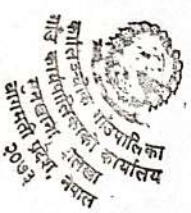 कालिन्चोक गाउँपालिका
गाउँ कार्यपालिकाको कार्यालय
सुनखानी, दोलखा
बागमती प्रदेश, नेपाल
२०७३